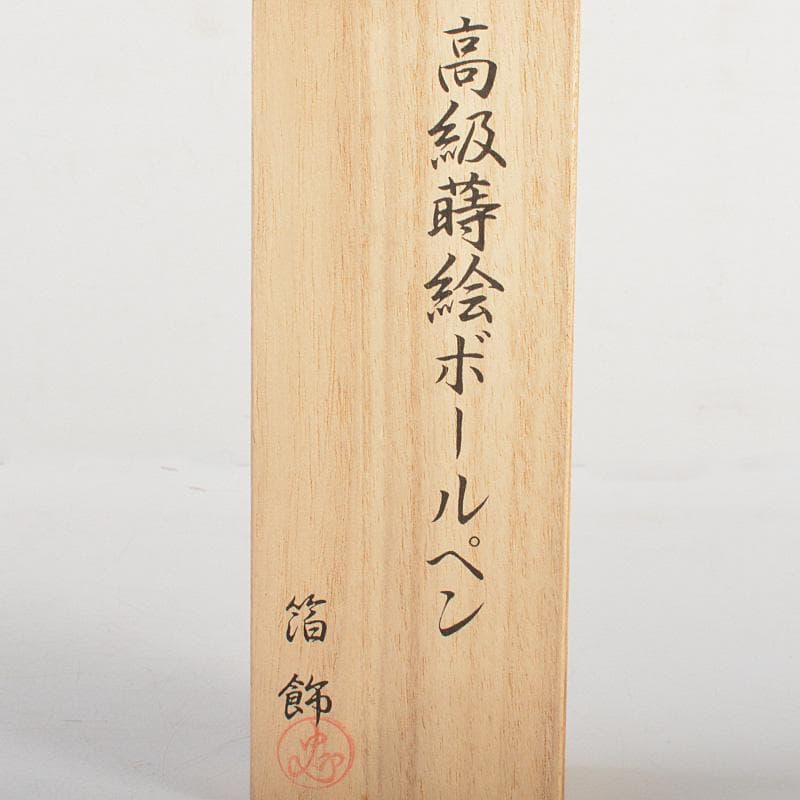 高級蒔絵ボールペン
箔飾